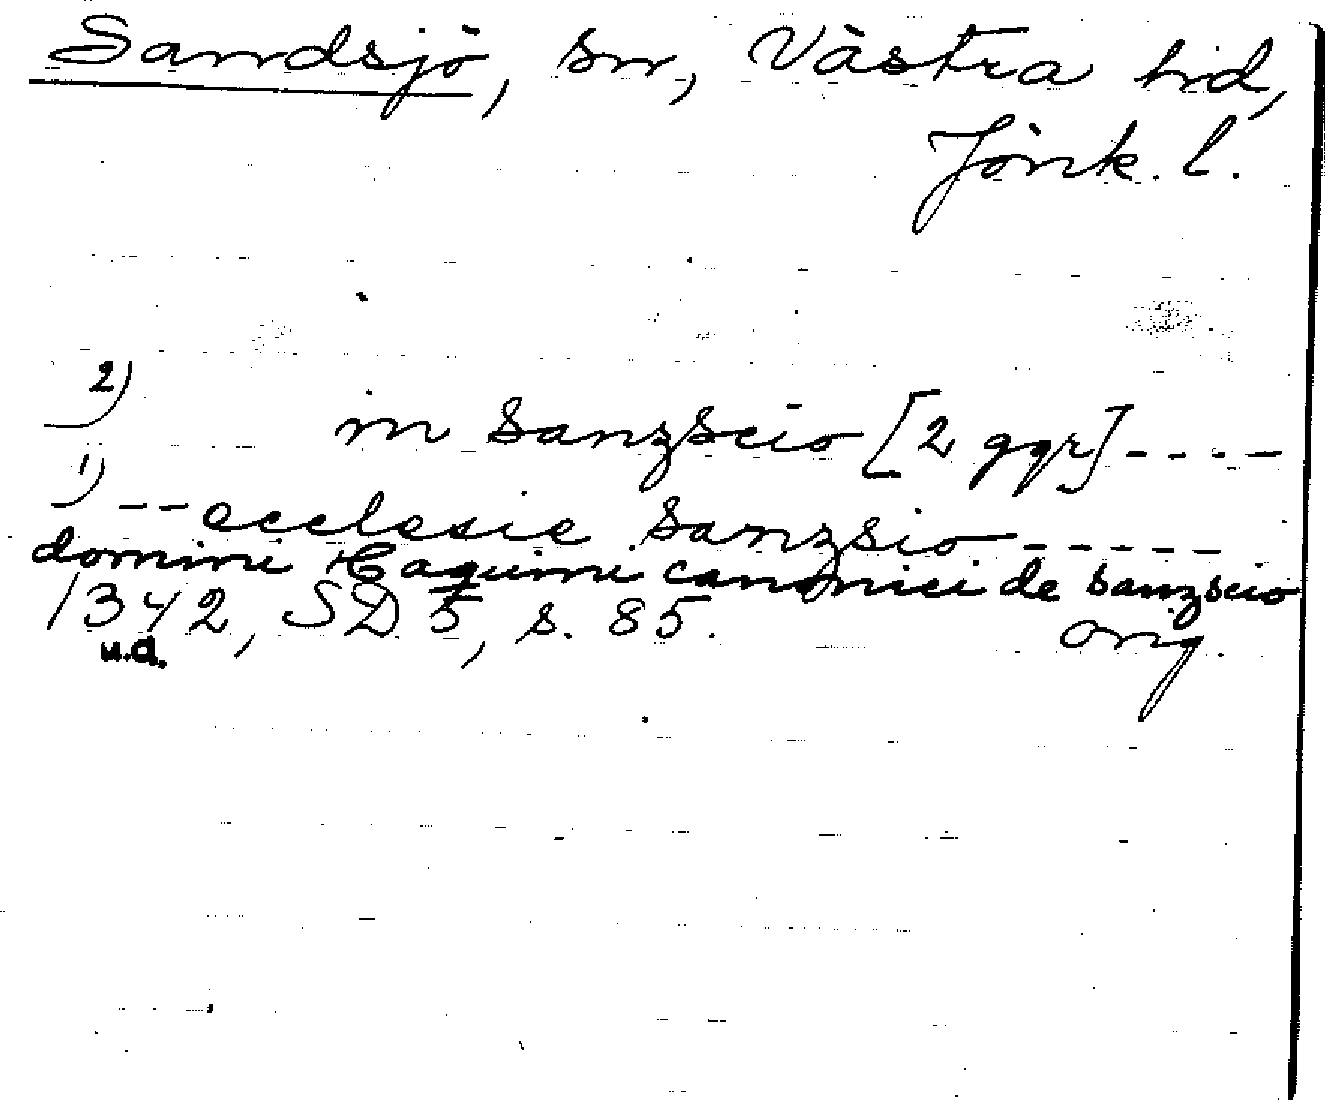 Sandsjö, sn, Västra hd,
Jönk. l.
2)
in Sanzscio [2 ggr] - - - -
1) - - ecclesie Sanzsio - - - - -
domini Haquini canonici de Sanzscio
1342, SD 5, s. 85. Orig.
u.d.